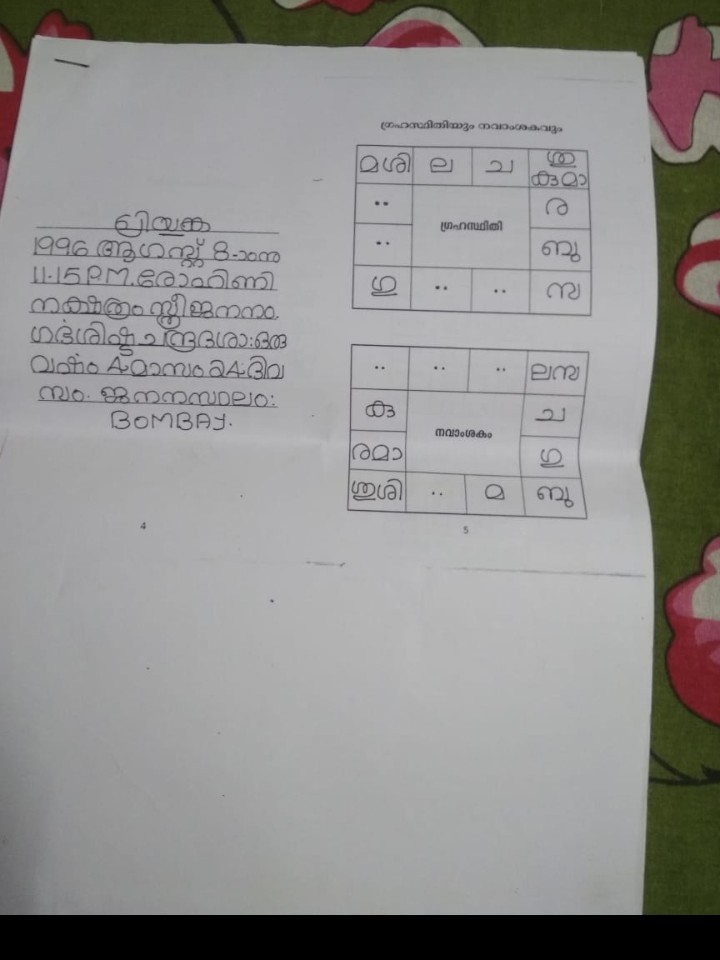 പ്രിയങ്ക
1996 ആഗസ്റ്റ് 8-ാംനു
11-15 P.M. രോഹിണി
നക്ഷത്രം സ്ത്രീജനനം.
ഗർഭശിഷ്ട ചന്ദ്രദശാ: ഒരു
വർഷം 4 മാസം 24 ദിവ
സം. ജനനസ്ഥലം:
BOMBAY.
4
ഗ്രഹസ്ഥിതിയും നവാംശകവും
മശി ല ച ശു
കുമാ
•• ര
ഗ്രഹസ്ഥിതി
•• ബു
ഗു •• •• സ
•• •• •• ലസ
കു ച
നവാംശകം
രമാ ഗു
ശുശി •• മ ബു
5